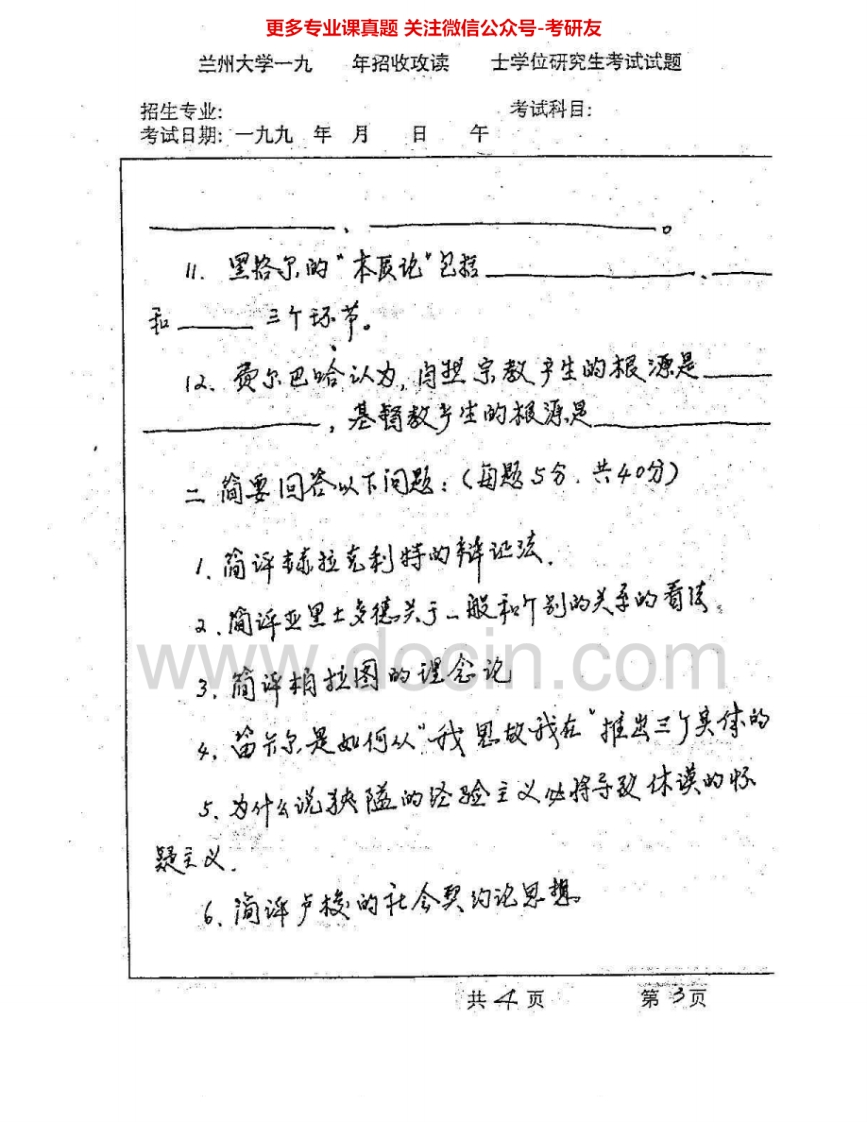 更多专业课真题 关注微信公众号-考研友
兰州大学一九 年招收攻读 士学位研究生考试试题
招生专业: 考试科目:
考试日期: 一九九 年 月 日 午
____________、____________。
11. 黑格尔的"本质论"包括____________、____
和____三个环节。
12、费尔巴哈认为,自然宗教产生的根源是____
____________,基督教产生的根源是____________
二 简要回答以下问题:(每题5分.共40分)
1、简评赫拉克利特的辩证法.
2、简评亚里士多德关于一般和个别的关系的看法。
www.docin.com
3、简评柏拉图的理念论
4、笛卡尔是如何从"我思故我在"推出三个实体的
5、为什么说狭隘的经验主义必将导致休谟的怀
疑主义.
6、简评卢梭的社会契约论思想
共4页 第3页